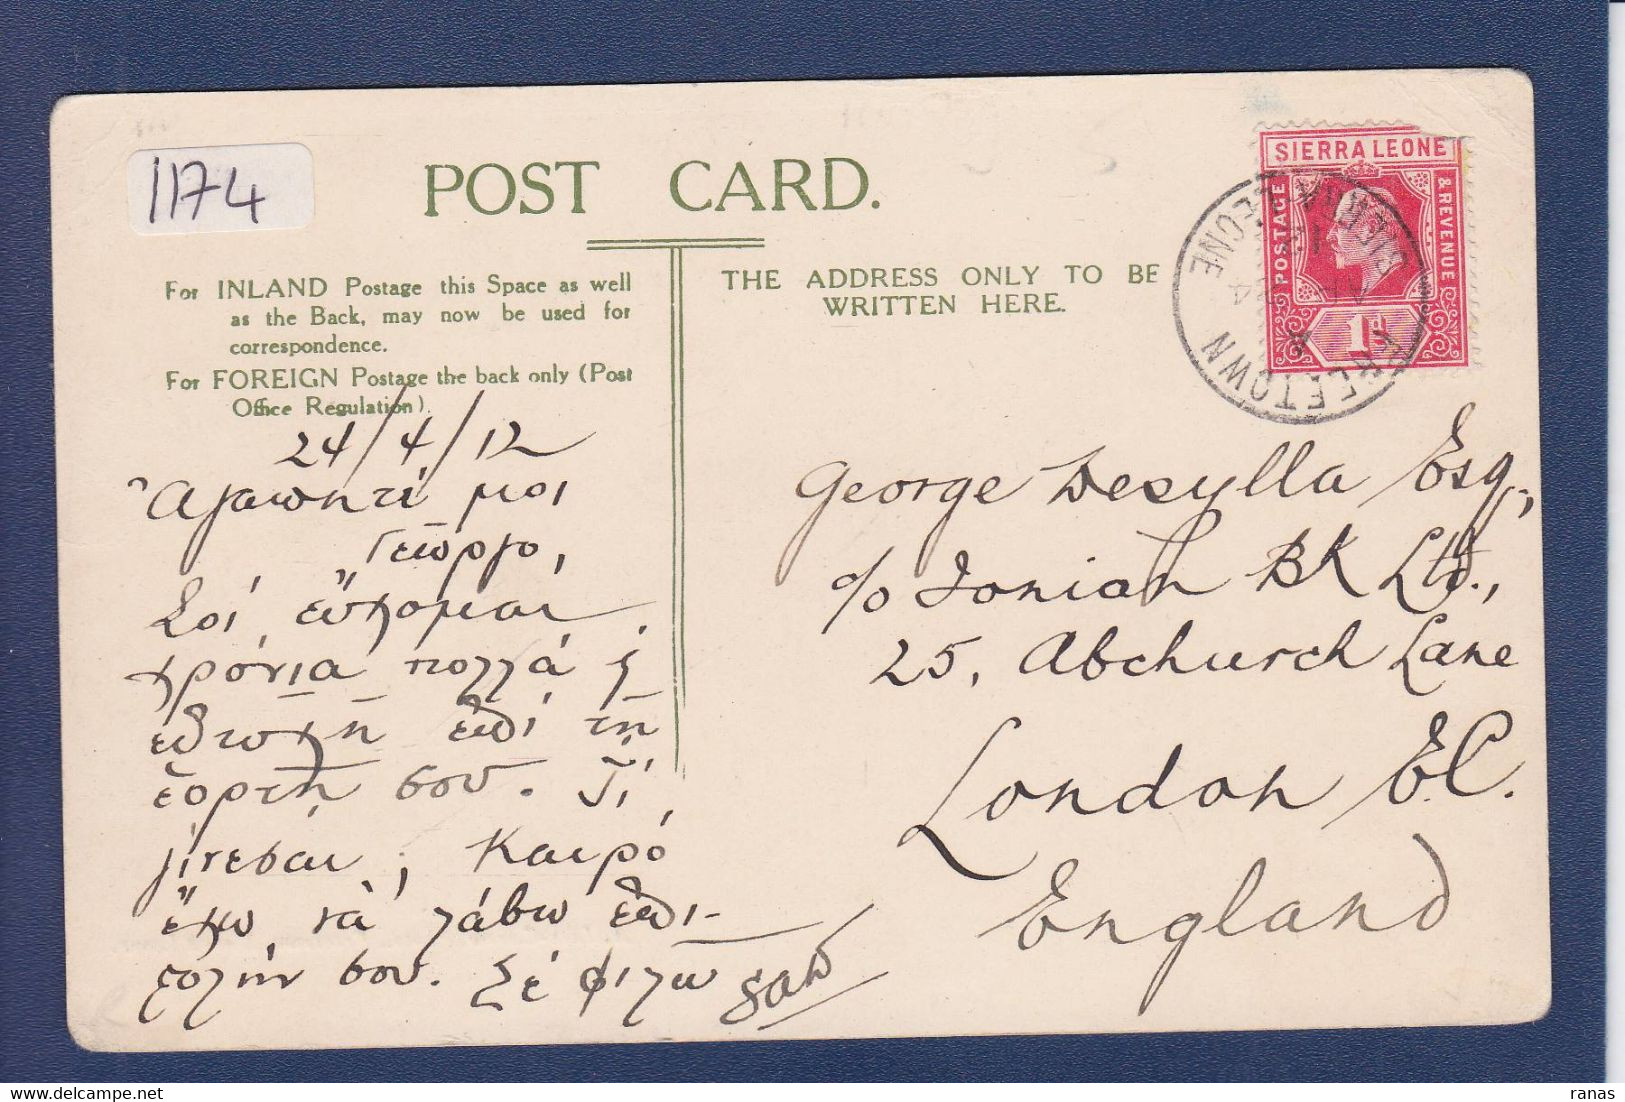 1174
POST CARD.
For INLAND Postage this Space as well
as the Back, may now be used for
correspondence.
For FOREIGN Postage the back only (Post
Office Regulation).
THE ADDRESS ONLY TO BE
WRITTEN HERE.
SIERRA LEONE
POSTAGE
& REVENUE
1d
FREETOWN
SIERRA LEONE
24/4/12
Ἀγαπητέ μοι
Γεώργο,
Σοί εὔχομαι
χρόνια πολλά &
εὐτυχῆ ἐπί τῇ
ἑορτῇ σου. Τί
γίνεσαι; Καιρό
ἔχω νὰ λάβω ἐπι-
στολήν σου. Σέ φιλῶ
George Desylla Esq.,
c/o Ionian BK Ltd.,
25, Abchurch Lane
London E.C.
England
ranas